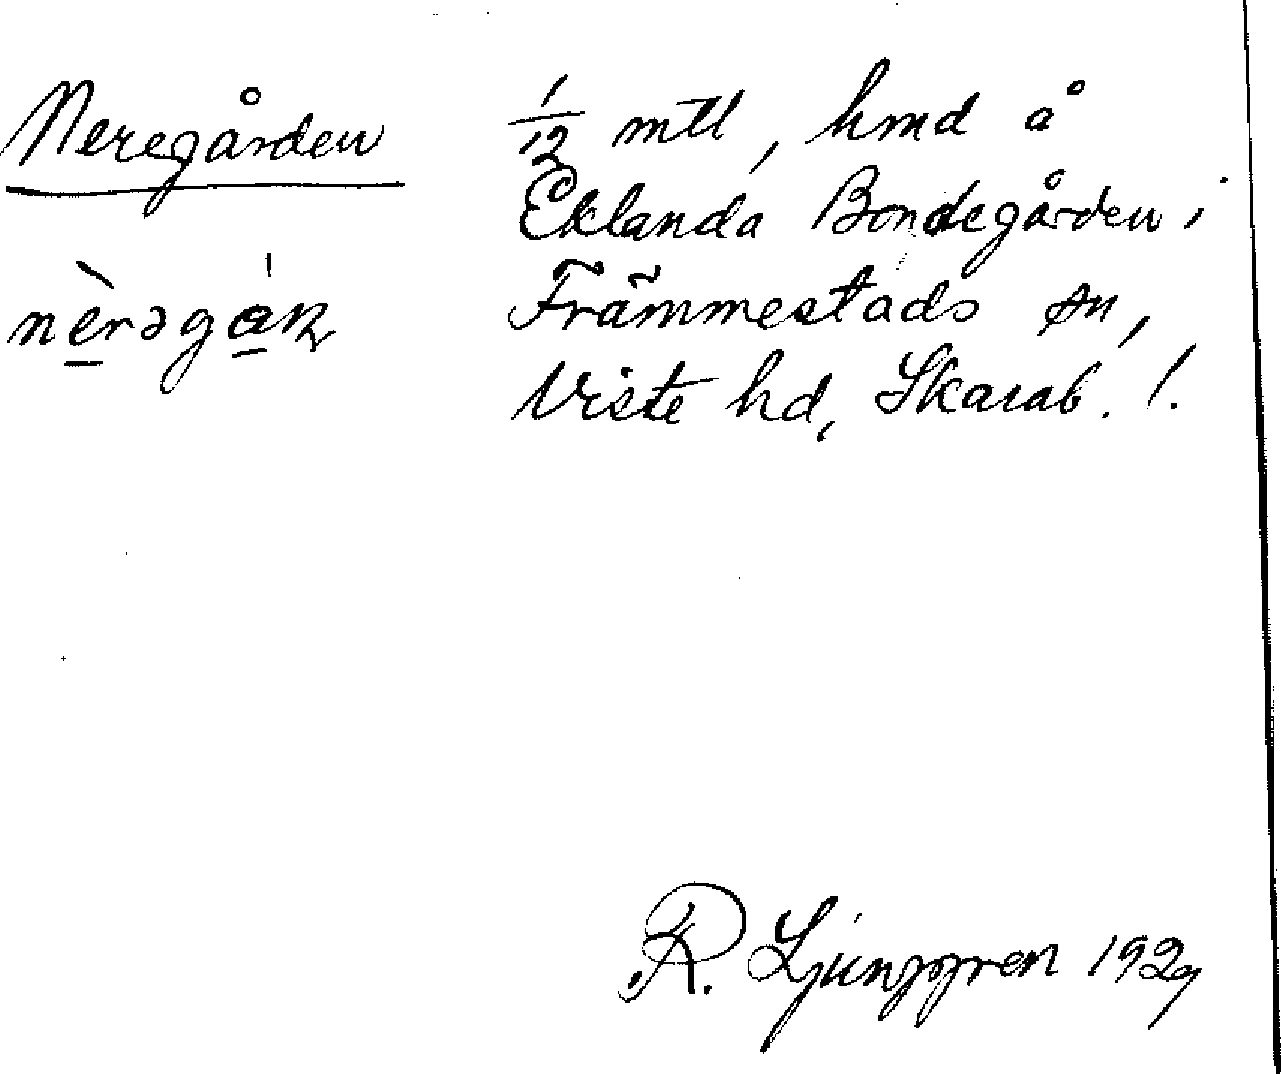 Neregården
nè̠rəgá̠ꞑ
1/12 mtl, hmd å
Eklanda Bondegården i
Främmestads sn,
Viste hd, Skarab. l.
R. Ljunggren 1929